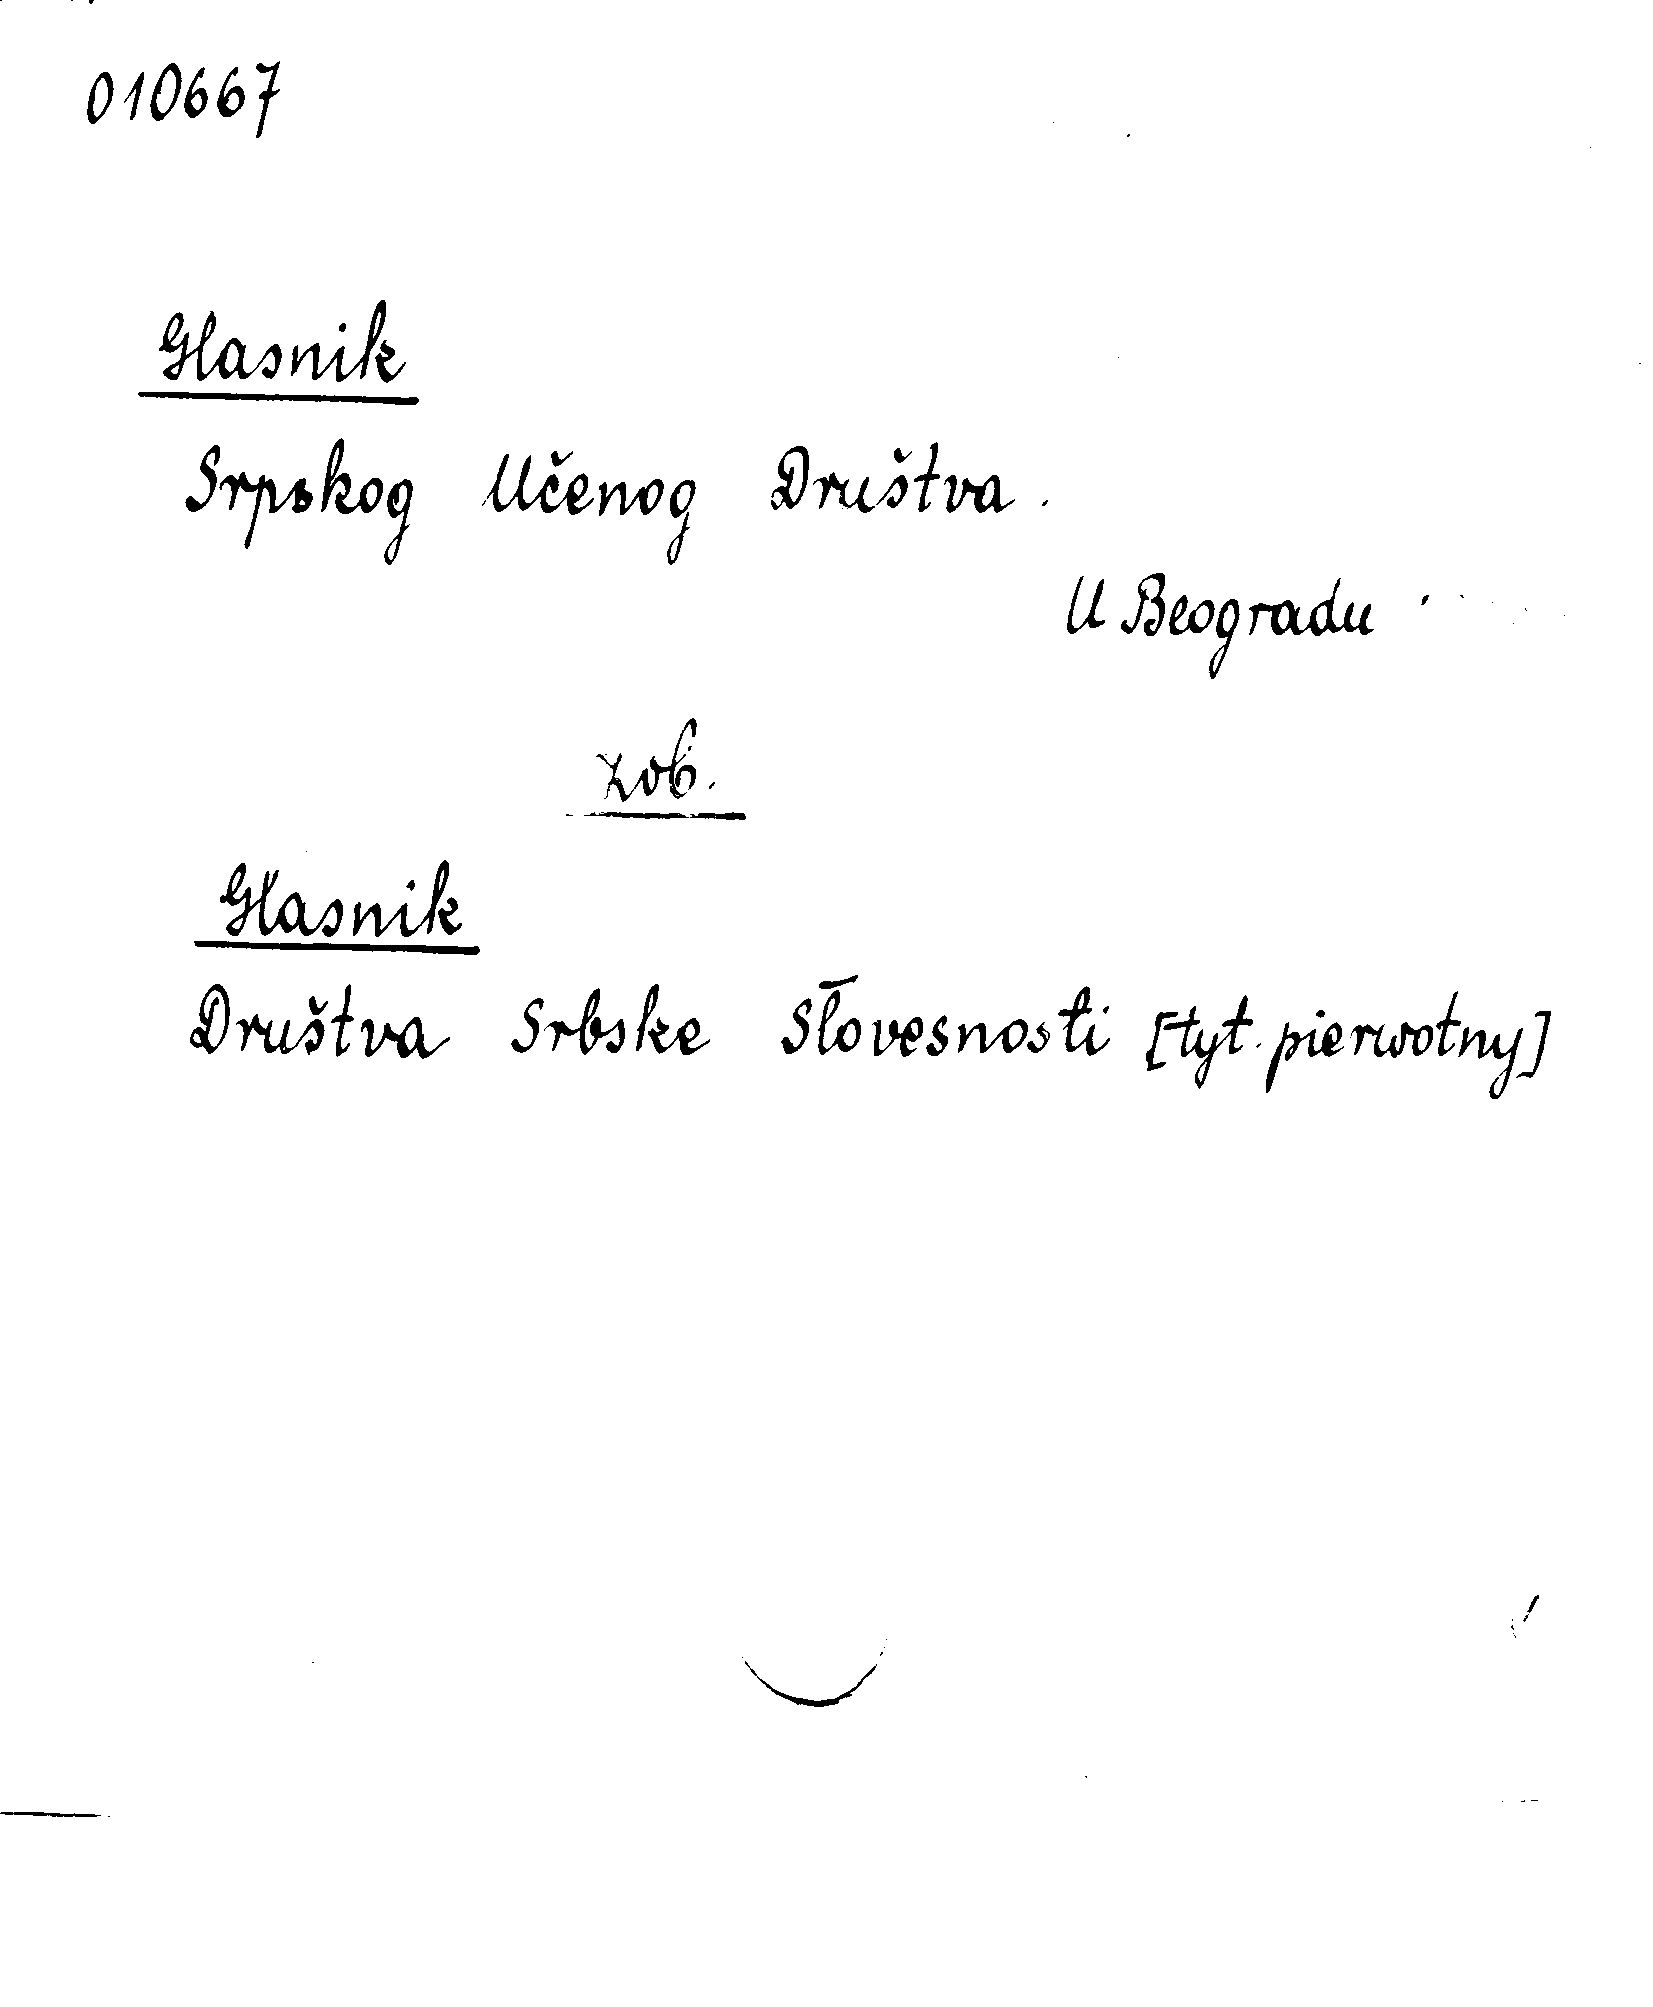 010667
Glasnik
Srpskog Učenog Društva.
U Beogradu
zob.
Glasnik
Društva Srbske Slovesnosti [tyt. pierwotny]